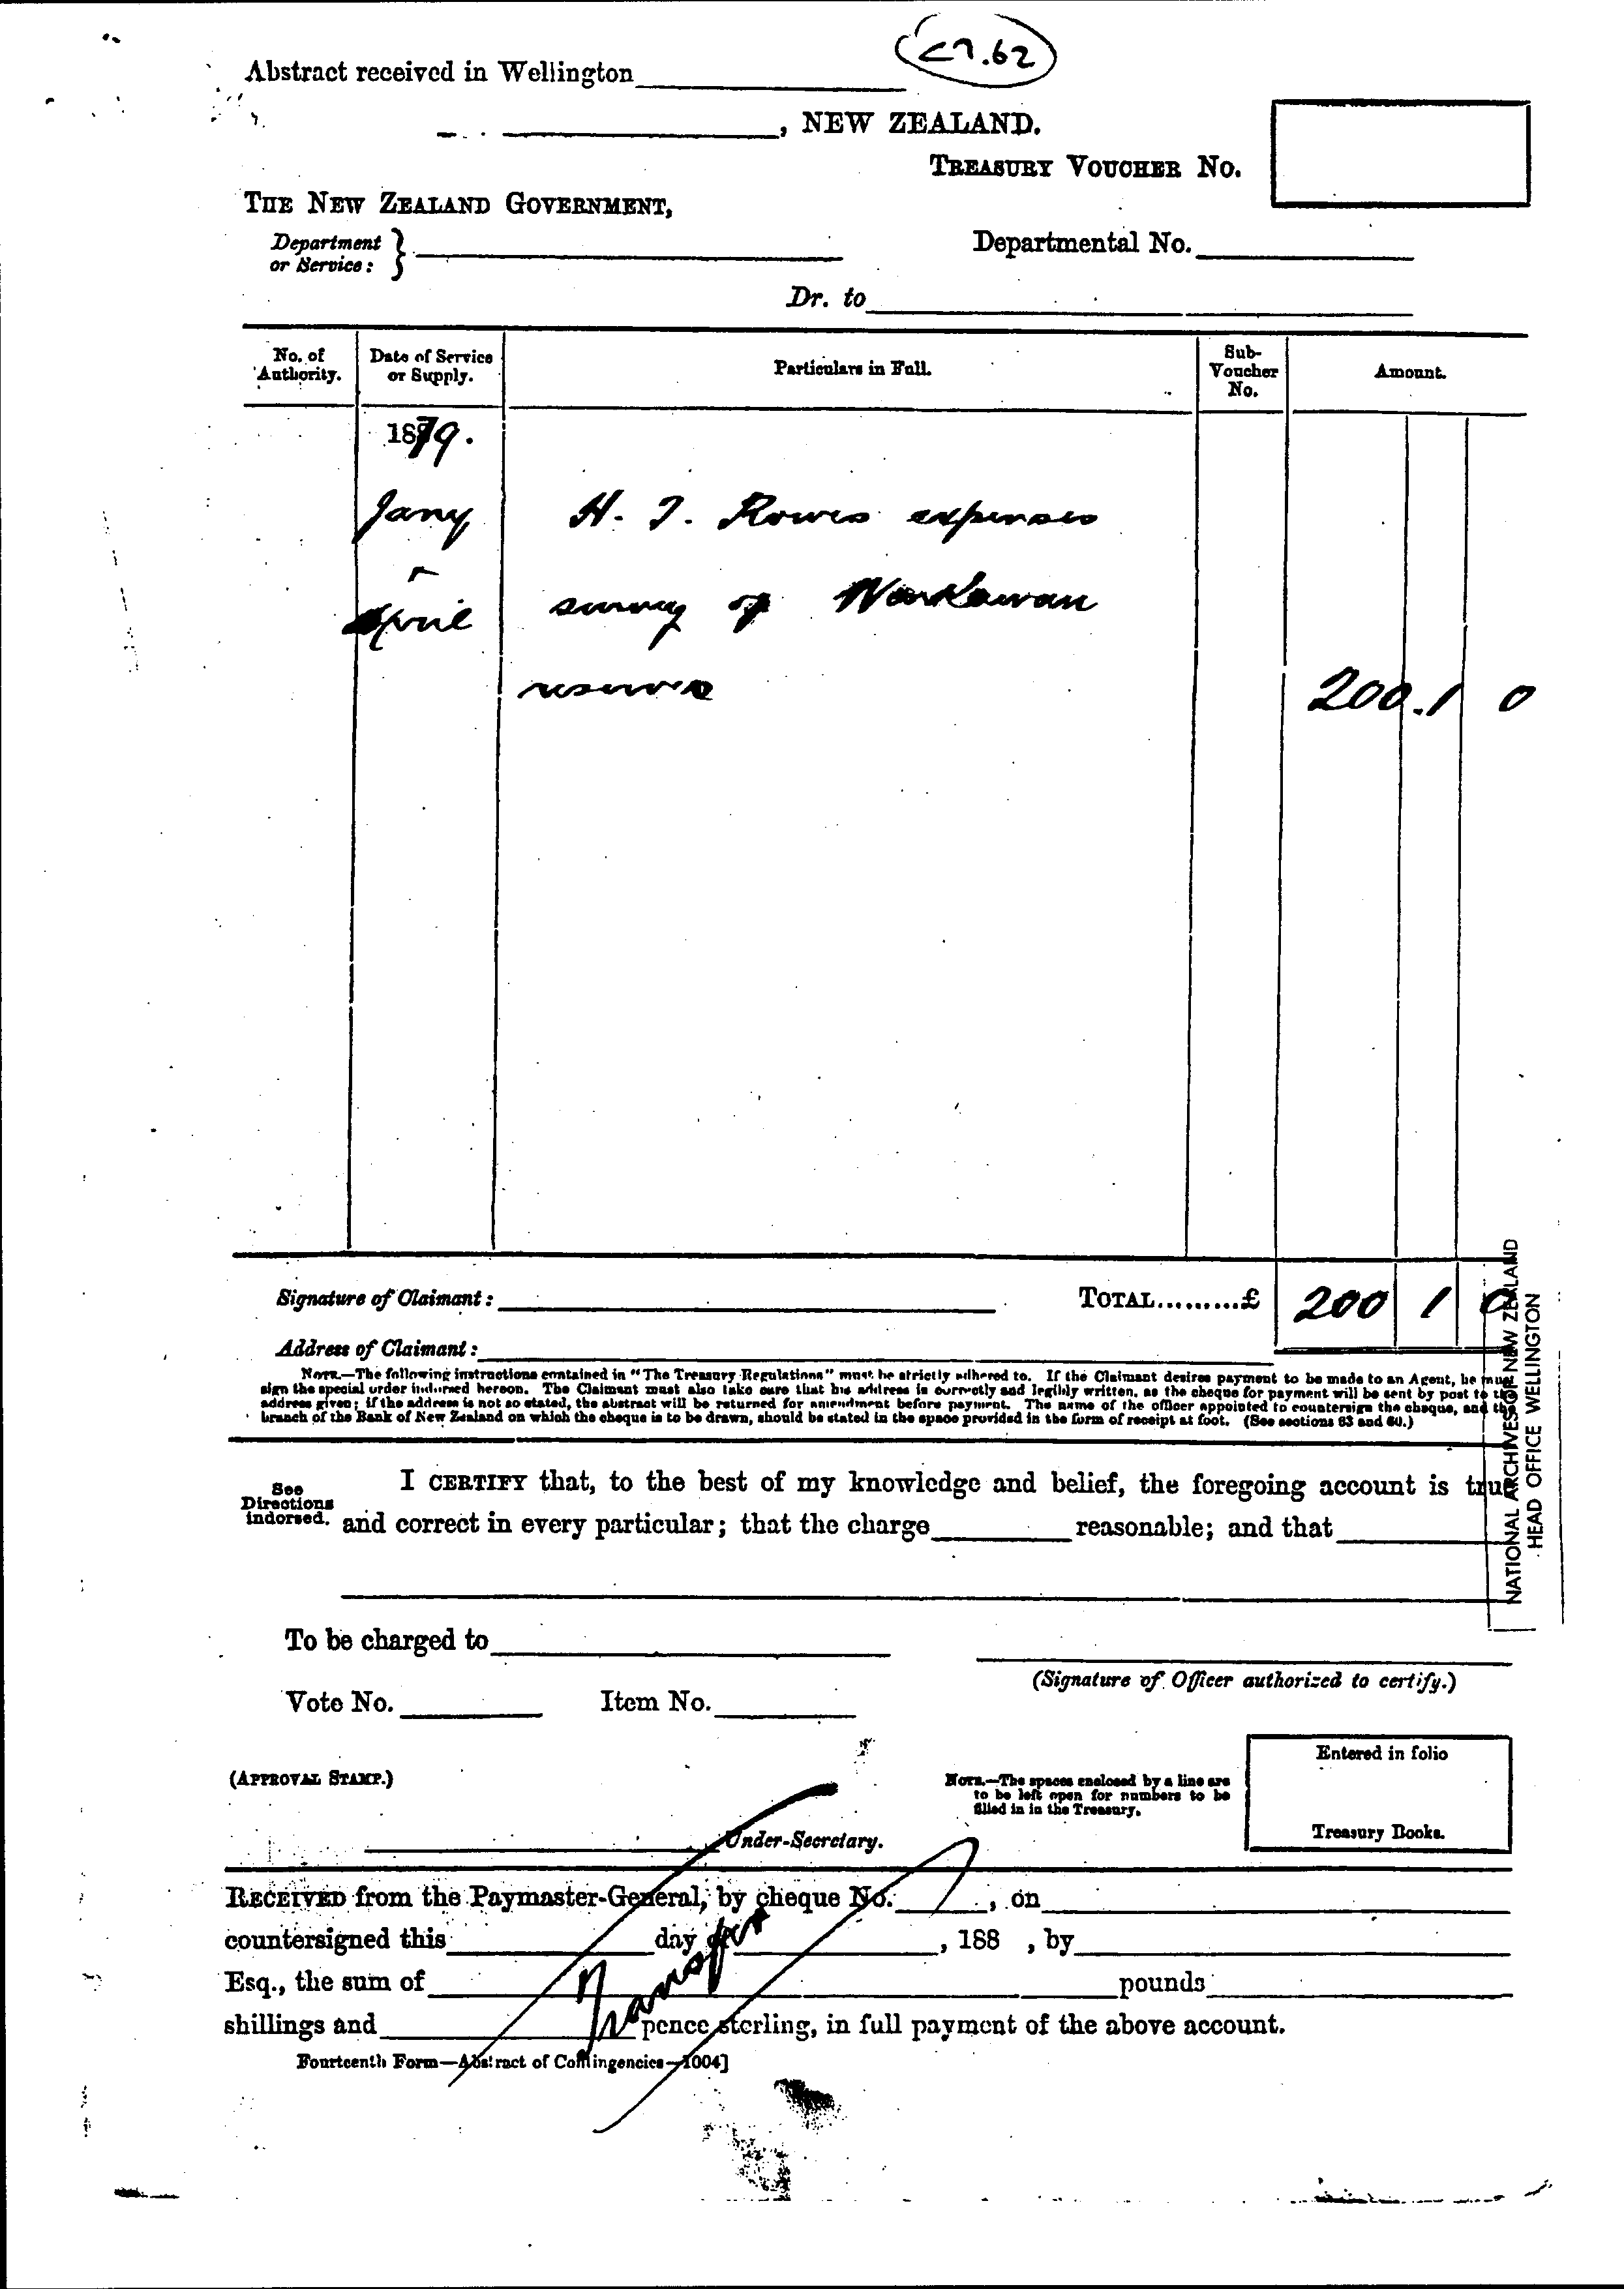 C7.62
Abstract received in Wellington
, NEW ZEALAND.
TREASURY VOUCHER No.
THE NEW ZEALAND GOVERNMENT,
Department or Service: }
Departmental No.
Dr. to
No. of Authority. Date of Service or Supply. Particulars in Full. Sub-Voucher No. Amount.
1879.
Jany H. J. Rowes expenses
April survey of
reserves 200. 1 0
Signature of Claimant: TOTAL.........£ 200 1 0
Address of Claimant:
NOTE.—The following instructions contained in "The Treasury Regulations" must be strictly adhered to. If the Claimant desires payment to be made to an Agent, he must
sign the special order indorsed hereon. The Claimant must also take care that his address is correctly and legibly written, as the cheque for payment will be sent by post to the
address given; if the address is not so stated, the abstract will be returned for amendment before payment. The name of the officer appointed to countersign the cheque, and the
branch of the Bank of New Zealand on which the cheque is to be drawn, should be stated in the space provided in the form of receipt at foot. (See sections 63 and 60.)
See Directions indorsed.
I CERTIFY that, to the best of my knowledge and belief, the foregoing account is true
and correct in every particular; that the charge reasonable; and that
NATIONAL ARCHIVES OF NEW ZEALAND
HEAD OFFICE WELLINGTON
To be charged to
(Signature of Officer authorized to certify.)
Vote No. Item No.
(APPROVAL STAMP.)
NOTE.—The spaces enclosed by a line are
to be left open for numbers to be
filled in in the Treasury.
Entered in folio
Treasury Books.
Under-Secretary.
RECEIVED from the Paymaster-General, by cheque No. , on
countersigned this day of , 188 , by
Esq., the sum of pounds
Transfer
shillings and pence sterling, in full payment of the above account.
Fourteenth Form—Abstract of Contingencies—1004]